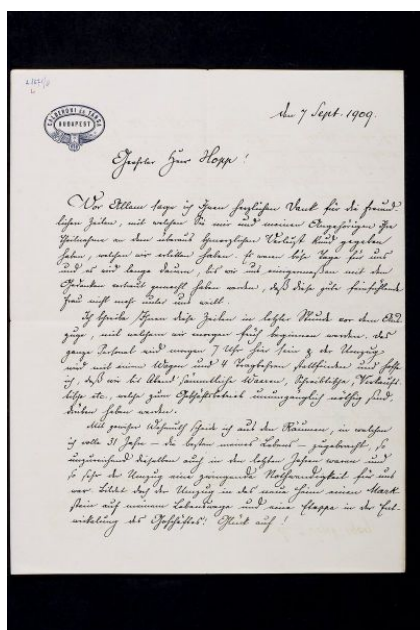 CALDERONI és TÁRSA
BUDAPEST
den 7 Sept. 1909.
Geehrter Herr Hopp!
Vor Allem sage ich Ihnen herzlichen Dank für die freund-
lichen Zeilen, mit welchen Sie mir und meinen Angehörigen Ihre
Theilnahme an dem überaus schmerzlichen Verlust kund gegeben
haben, welchen wir erlitten haben. Es waren böse Tage für uns
und es wird lange dauern, bis wir uns einigermaßen mit dem
Gedanken vertraut gemacht haben werden, daß diese gute feinfühlende
Frau nicht mehr unter uns weilt.
Ich schreibe Ihnen diese Zeilen in letzter Stunde vor dem Aus-
zuge, mit welchem wir morgen früh beginnen werden. Das
ganze Personal wird morgen 7 Uhr hier sein & der Umzug
wird mit einem Wagen und 4 Tragbahren stattfinden und hoffe
ich, daß wir bis Abend sämmtliche Waaren, Schreibtische, Verkaufs-
tische etc., welche zum Geschäftsbetrieb unumgänglich nöthig sind,
drüben haben werden.
Mit gewisser Wehmuth scheide ich aus den Räumen, in welchen
ich volle 31 Jahre – die besten meines Lebens – zugebracht, so
unzureichend dieselben auch in den letzten Jahren waren und
so sehr der Umzug eine zwingende Nothwendigkeit für uns
war. Bildet doch der Umzug in das neue Heim einen Mark-
stein auf meinem Lebenswege und eine Etappe in der Ent-
wickelung des Geschäftes: Glück auf!